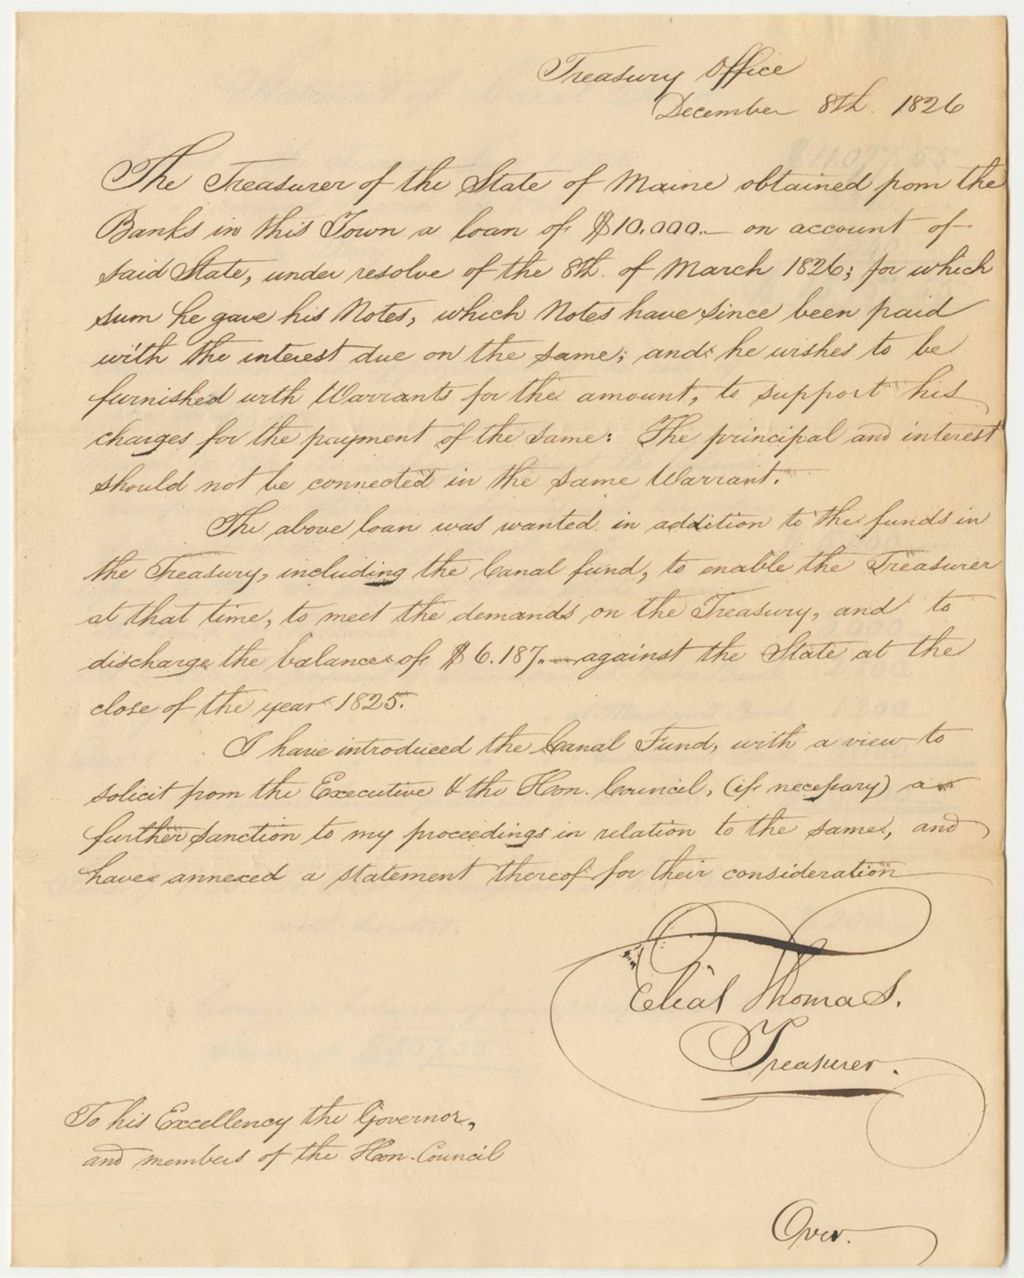 Treasury Office
December 8th. 1826
The Treasurer of the State of Maine obtained from the
Banks in this Town a loan of $10.000.— on account of
said State, under resolve of the 8th. of March 1826; for which
sum he gave his Notes, which Notes have since been paid
with the interest due on the same; and he wishes to be
furnished with Warrants for the amount, to support his
charges for the payment of the same: The principal and interest
should not be connected in the same Warrant.
The above loan was wanted in addition to the funds in
the Treasury, including the Canal fund, to enable the Treasurer
at that time, to meet the demands on the Treasury, and to
discharge the balance of $6.187.— against the State at the
close of the year 1825.
I have introduced the Canal Fund, with a view to
solicit from the Executive & the Hon. Council, (if necessary) a
further sanction to my proceedings in relation to the same, and
have annexed a statement thereof for their consideration
Elias Thomas.
Treasurer.
To his Excellency the Governor,
and members of the Hon. Council
Over.